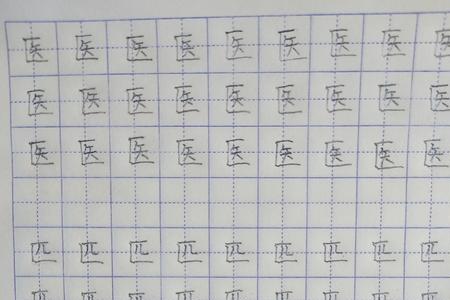 医 医 医 医 医 医 医 医 医
医 医 医 医 医 医 医 医 医
医 医 医 医 医 医 医 医 医
匹 匹 匹 匹 匹 匹 匹 匹 匹
匹 匹 匹 匹 匹 匹 匹 匹 匹